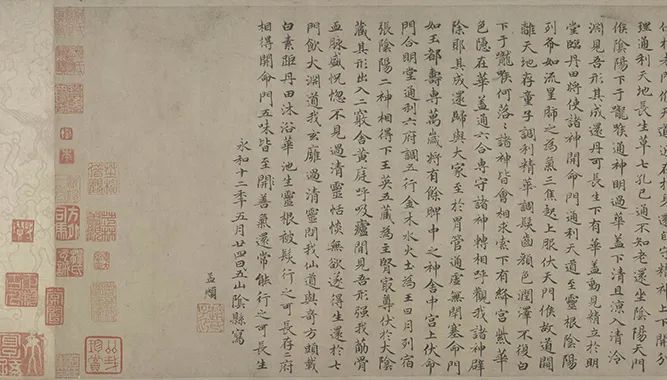 自守精神上下開分
理通利天地長生草七孔已通不知老還坐陰陽天門
候陰陽下于嚨喉通神明過華蓋下清且涼入清泠
淵見吾形其成還丹可長生下有華蓋動見精立於明
堂臨丹田將使諸神開命門通利天道至靈根陰陽
列布如流星肺之為氣三焦起上服伏天門候故道闚
離天地存童子調利精華調髮齒顏色潤澤不復白
下于嚨喉何落〻諸神皆會相求索下有絳宮紫華
色隱在華蓋通六合專守諸神轉相呼觀我諸神辟
除耶其成還歸與大家至於胃管通虛無閉塞命門
如玉都壽專萬歲將有餘脾中之神舍中宮上伏命
門合明堂通利六府調五行金木水火土為王日月列宿
張陰陽二神相得下玉英五藏為主腎最尊伏於大陰
藏其形出入二竅舍黃庭呼吸廬間見吾形強我筋骨
血脈盛恍惚不見過清靈恬惔無欲遂得生還於七
門飲大淵道我玄膺過清靈問我仙道與奇方頭載
白素距丹田沐浴華池生靈根被髮行之可長存二府
相得開命門五味皆至開善氣還常能行之可長生
永和十二年五月廿四五山陰縣寫
孟頫